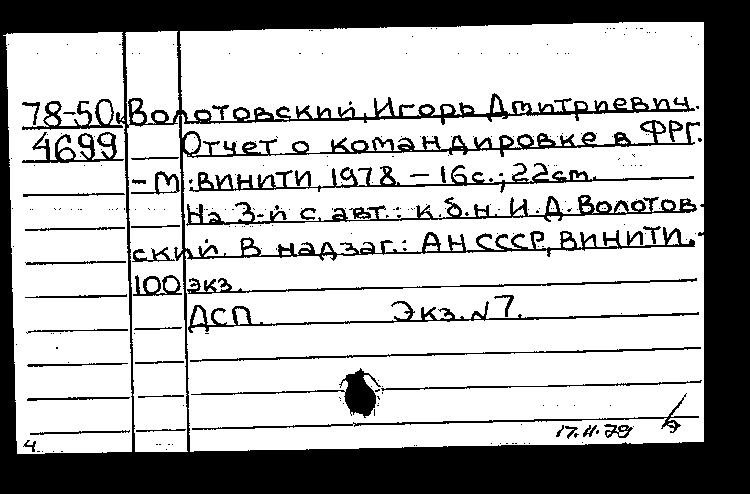 78-50к Волотовский, Игорь Дмитриевич.
4699 Отчет о командировке в ФРГ.
-М.: ВИНИТИ, 1978. - 16с.; 22см.
На 3-й с. авт.: к.б.н. И.Д. Волотов-
ский. В надзаг.: АН СССР, ВИНИТИ.-
100 экз.
ДСП. Экз. №7.
17.11.79
4